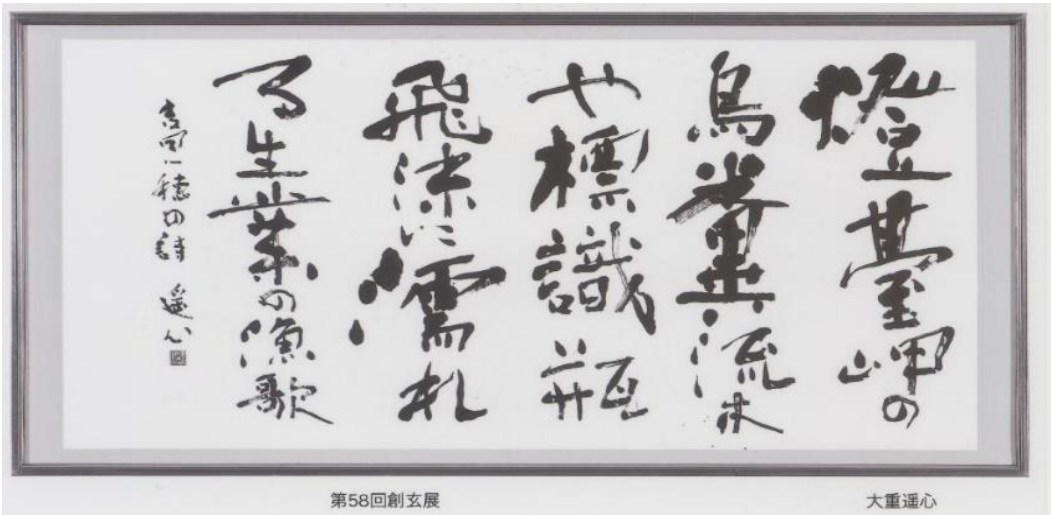 燈臺岬の
鳥糞流木
や標識瓶
飛沫に濡れ
る生業の漁歌
吉田一穂の詩 遥心
第58回創玄展
大重遥心